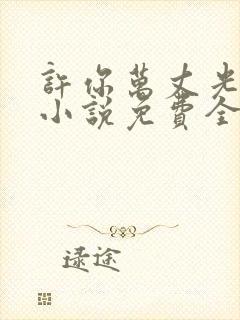 許你萬丈光
小說免費全
逯途